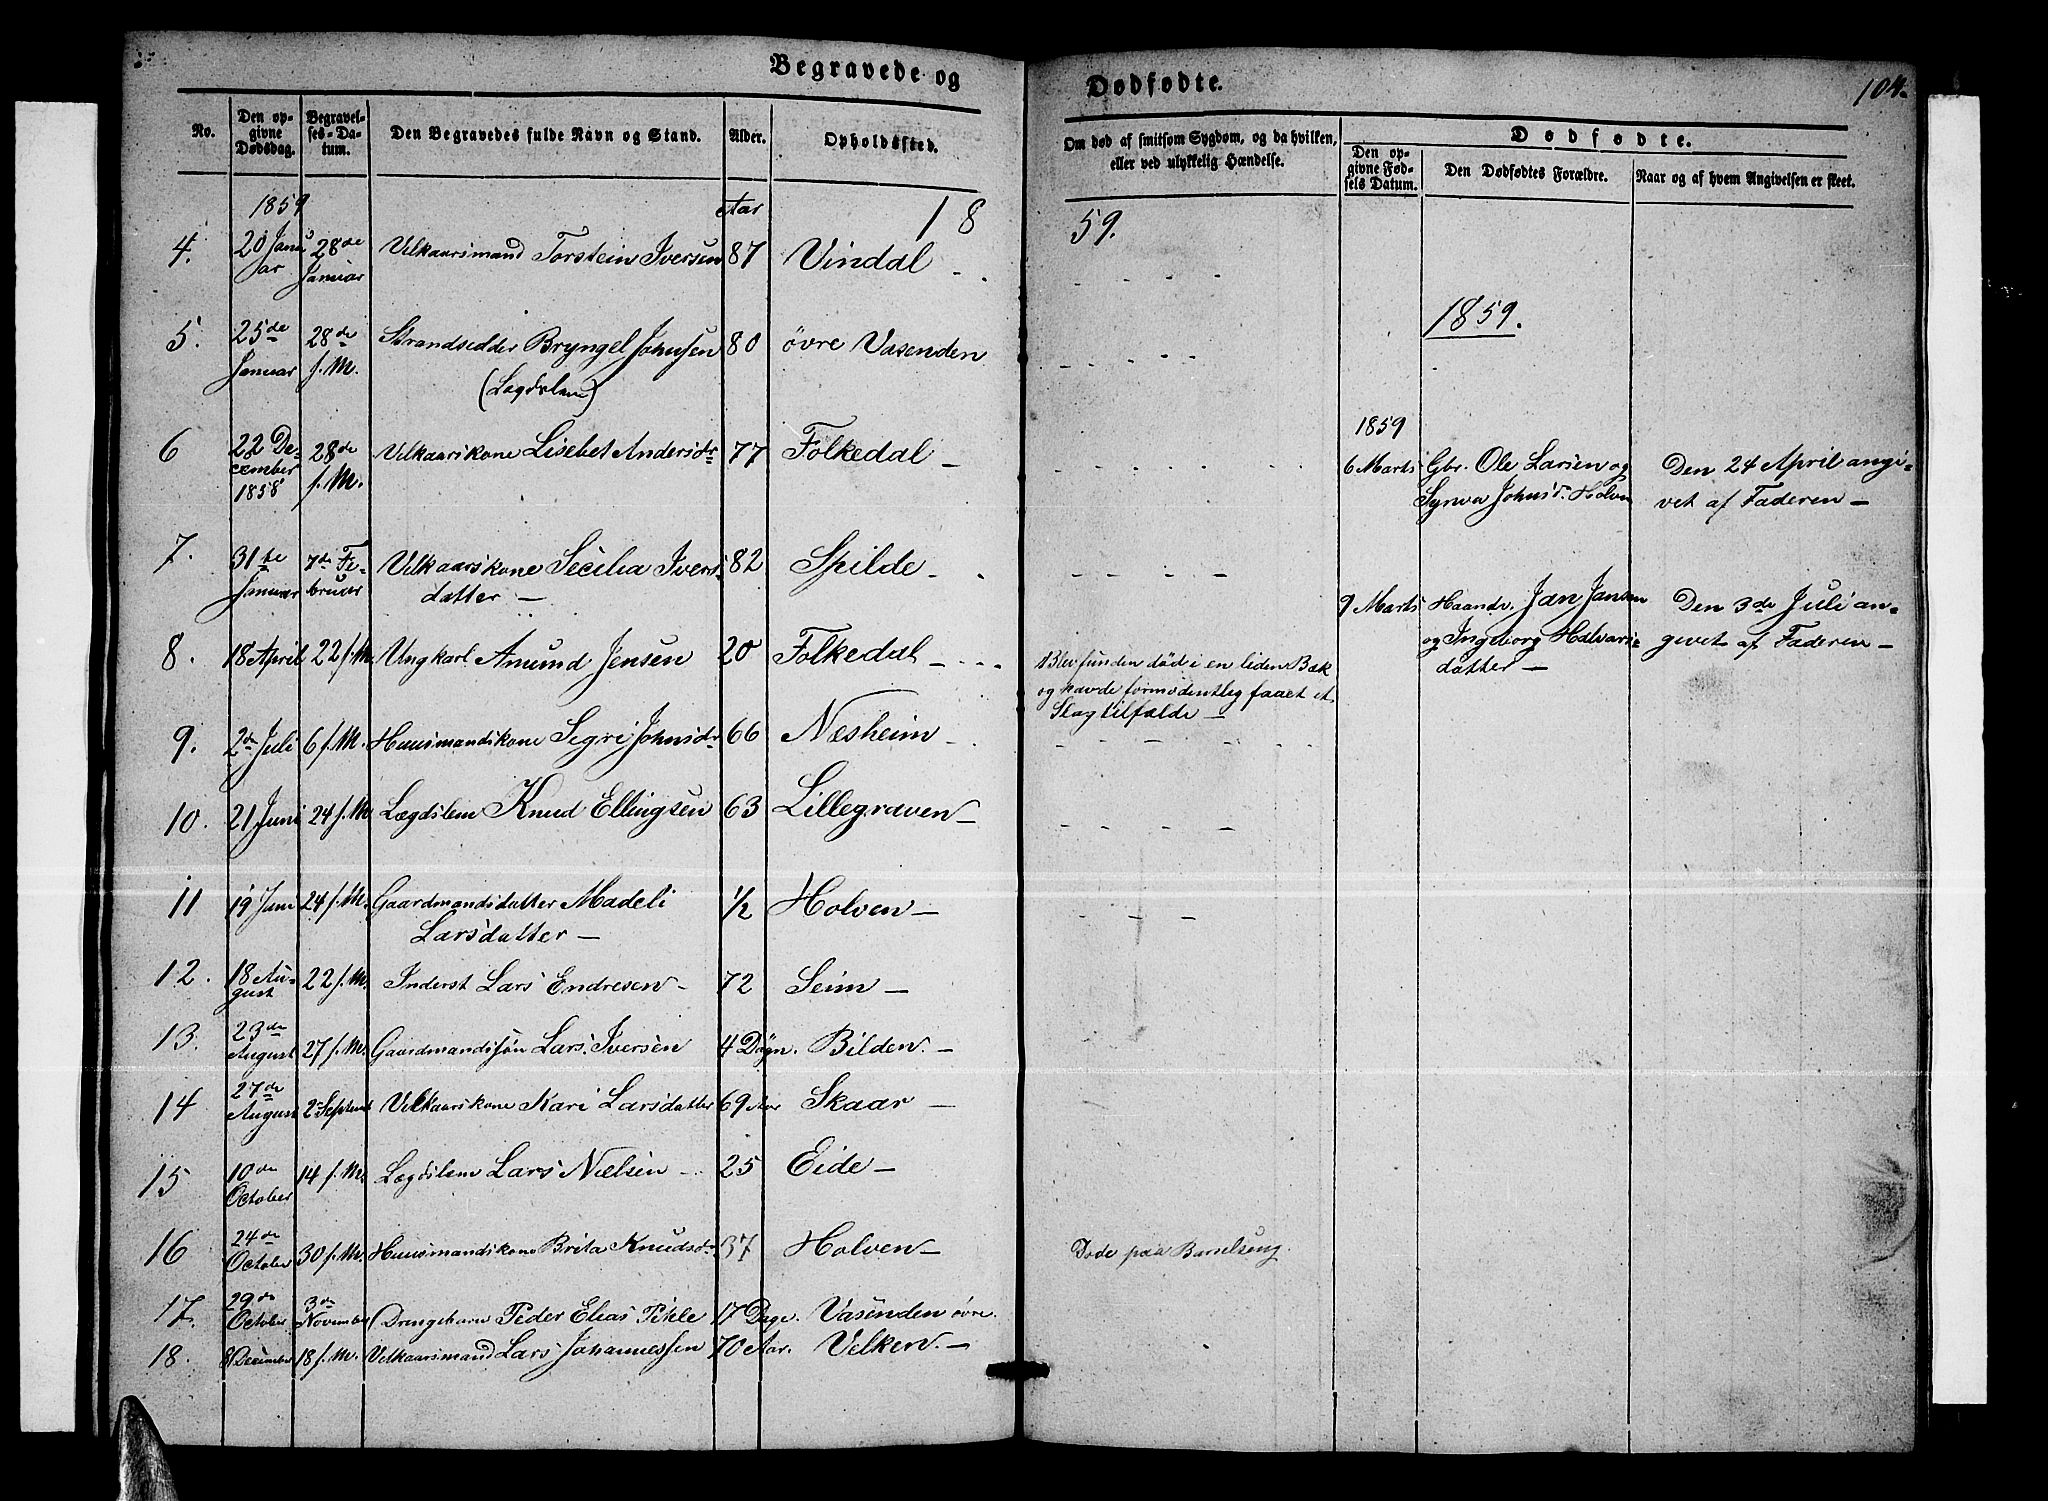 Begravede og
Dødfødte.
104.
No.
Den opgivne Dødsdag.
Begravelses-Datum.
Den Begravedes fulde Navn og Stand.
Alder.
Opholdssted.
Om død af smitsom Sygdom, og da hvilken, eller ved ulykkelig Hændelse.
Dødfødte.
Den opgivne Fødsels Datum.
Den Dødfødtes Forældre.
Naar og af hvem Angivelsen er skeet.
1859 Aar 18 59.
4. 20 Januar 28de Januar Velkaarsmand Torstein Iversen 87 Vindal
5. 25de Januar 28de f. M. Strandsedder Bryngel Johnsen 80 øvre Vasenden
(Lægdslem)
6 22 December 1858 28de f. M. Velkaarskone Lisebet Andersdr 77 Folkedal –
7. 31te Januar 7de Februar Velkaarskone Secilia Ivers- 82 Spilde –
datter –
8. 18 April 22 f. M. Ungkarl Amund Jensen 20 Folkedal –
Blev funden død i en liden Bæk
og havde formodentleg faaet et
Slagtilfælde –
9. 2de Juli 6 f. M. Huusmandskone Segri Johnsdr 66 Næsheim –
10. 21 Juni 24 f. M. Lægdslem Knud Ellingsen 63 Lillegraven –
11 19 Juni 24 f. M. Gaardmandsdatter Madeli 1/2 Holven –
Larsdatter –
12. 18 August 22 f. M. Inderst Lars Endresen – 72 Seim –
13. 23de August 27 f. M. Gaardmandssøn Lars Iversen 4 Døgn. Bilden. –
14 27de August 2 Septembr Velkaarskone Kari Larsdatter 69 Aar Skaar –
15 10de October 14 f. M. Lægdslem Lars Nielsen – 25 Eide –
16 24de October 30 f. M. Huusmandskone Brita Knudsdr 37 Holven –
Døde paa Barselseng.
17. 29de October 3de November Drengebarn Peder Elias Pihle 17 Dage. Vasenden øvre.
18. 8 December 18 f. M. Velkaarsmand Lars Johannessen 70 Aar. Velken. –
1859.
1859
6 Marts Gbr. Ole Larsen og Den 24 April angi-
Synva Johnsd. Holven vet af Faderen –
9 Marts Haandv. Jan Jansen Den 3de Juli an-
og Ingeborg Halvars- givet af Faderen –
datter –